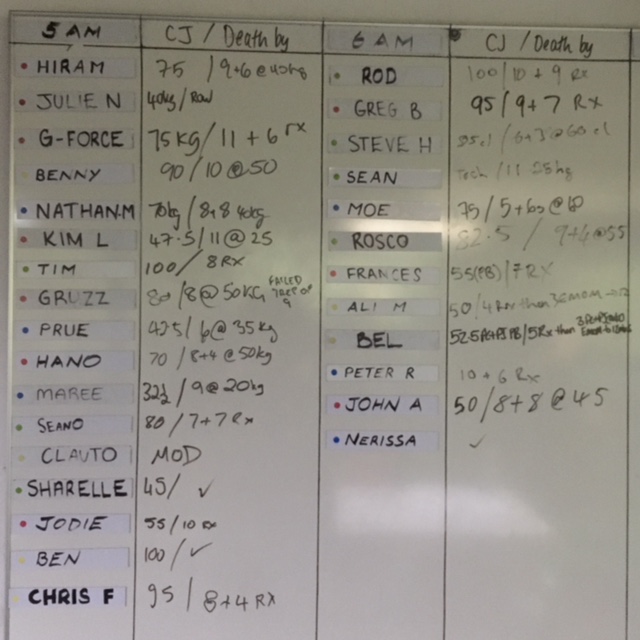 5 AM CJ / Death by
HIRAM 75 / 9+6 @ 40kg
JULIE N 40kg / Row
G-FORCE 75 KG / 11 + 6 rx
BENNY 90 / 10 @ 50
NATHAN.M 70kg / 8+8 40kg
KIM L 47.5 / 11 @ 25
TIM 100 / 8 RX
GRUZZ 80 / 8 @ 50KG FAILED
PRUE 42.5 / 6 @ 35 kg
HANO 70 / 8+4 @ 50kg
MAREE 32½ / 9 @ 20kg
SEANO 80 / 7+7 Rx
CLAUTO MOD
SHARELLE 45 / ✓
JODIE 55 / 10 RX
BEN 100 / ✓
CHRIS F 95 / 8+4 RX
6 AM CJ / Death by
ROD 100 / 10 + 9 Rx
GREG B 95 / 9+7 Rx
STEVE H
SEAN Tech / 11
MOE 75 / 5+
ROSCO 82.5 / 9+4 @ 55
FRANCES 55(PB) / 7 RX
ALI M 50 / 4 Rx then 3 EMOM
BEL 52.5 PB / 5 Rx then
PETER R 10 + 6 Rx
JOHN A 50 / 8+8 @ 45
NERISSA ✓